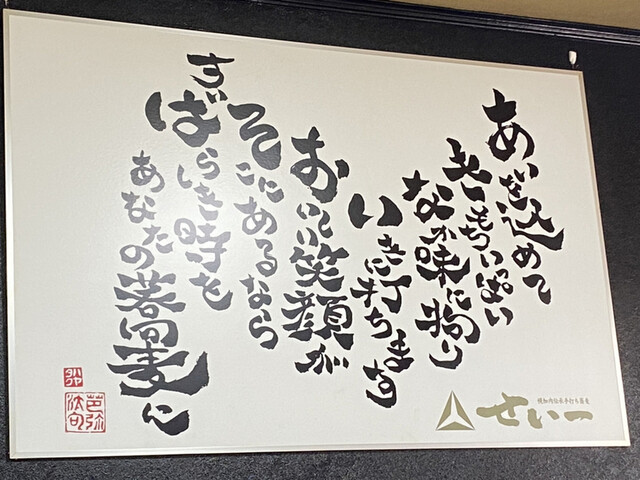 あいを込めて
きもちいっぱい
なか味に拘り
いきに打ちます
おいしい笑顔が
そこにあるなら
すばらしき時を
あなたの蕎麦に
せい一